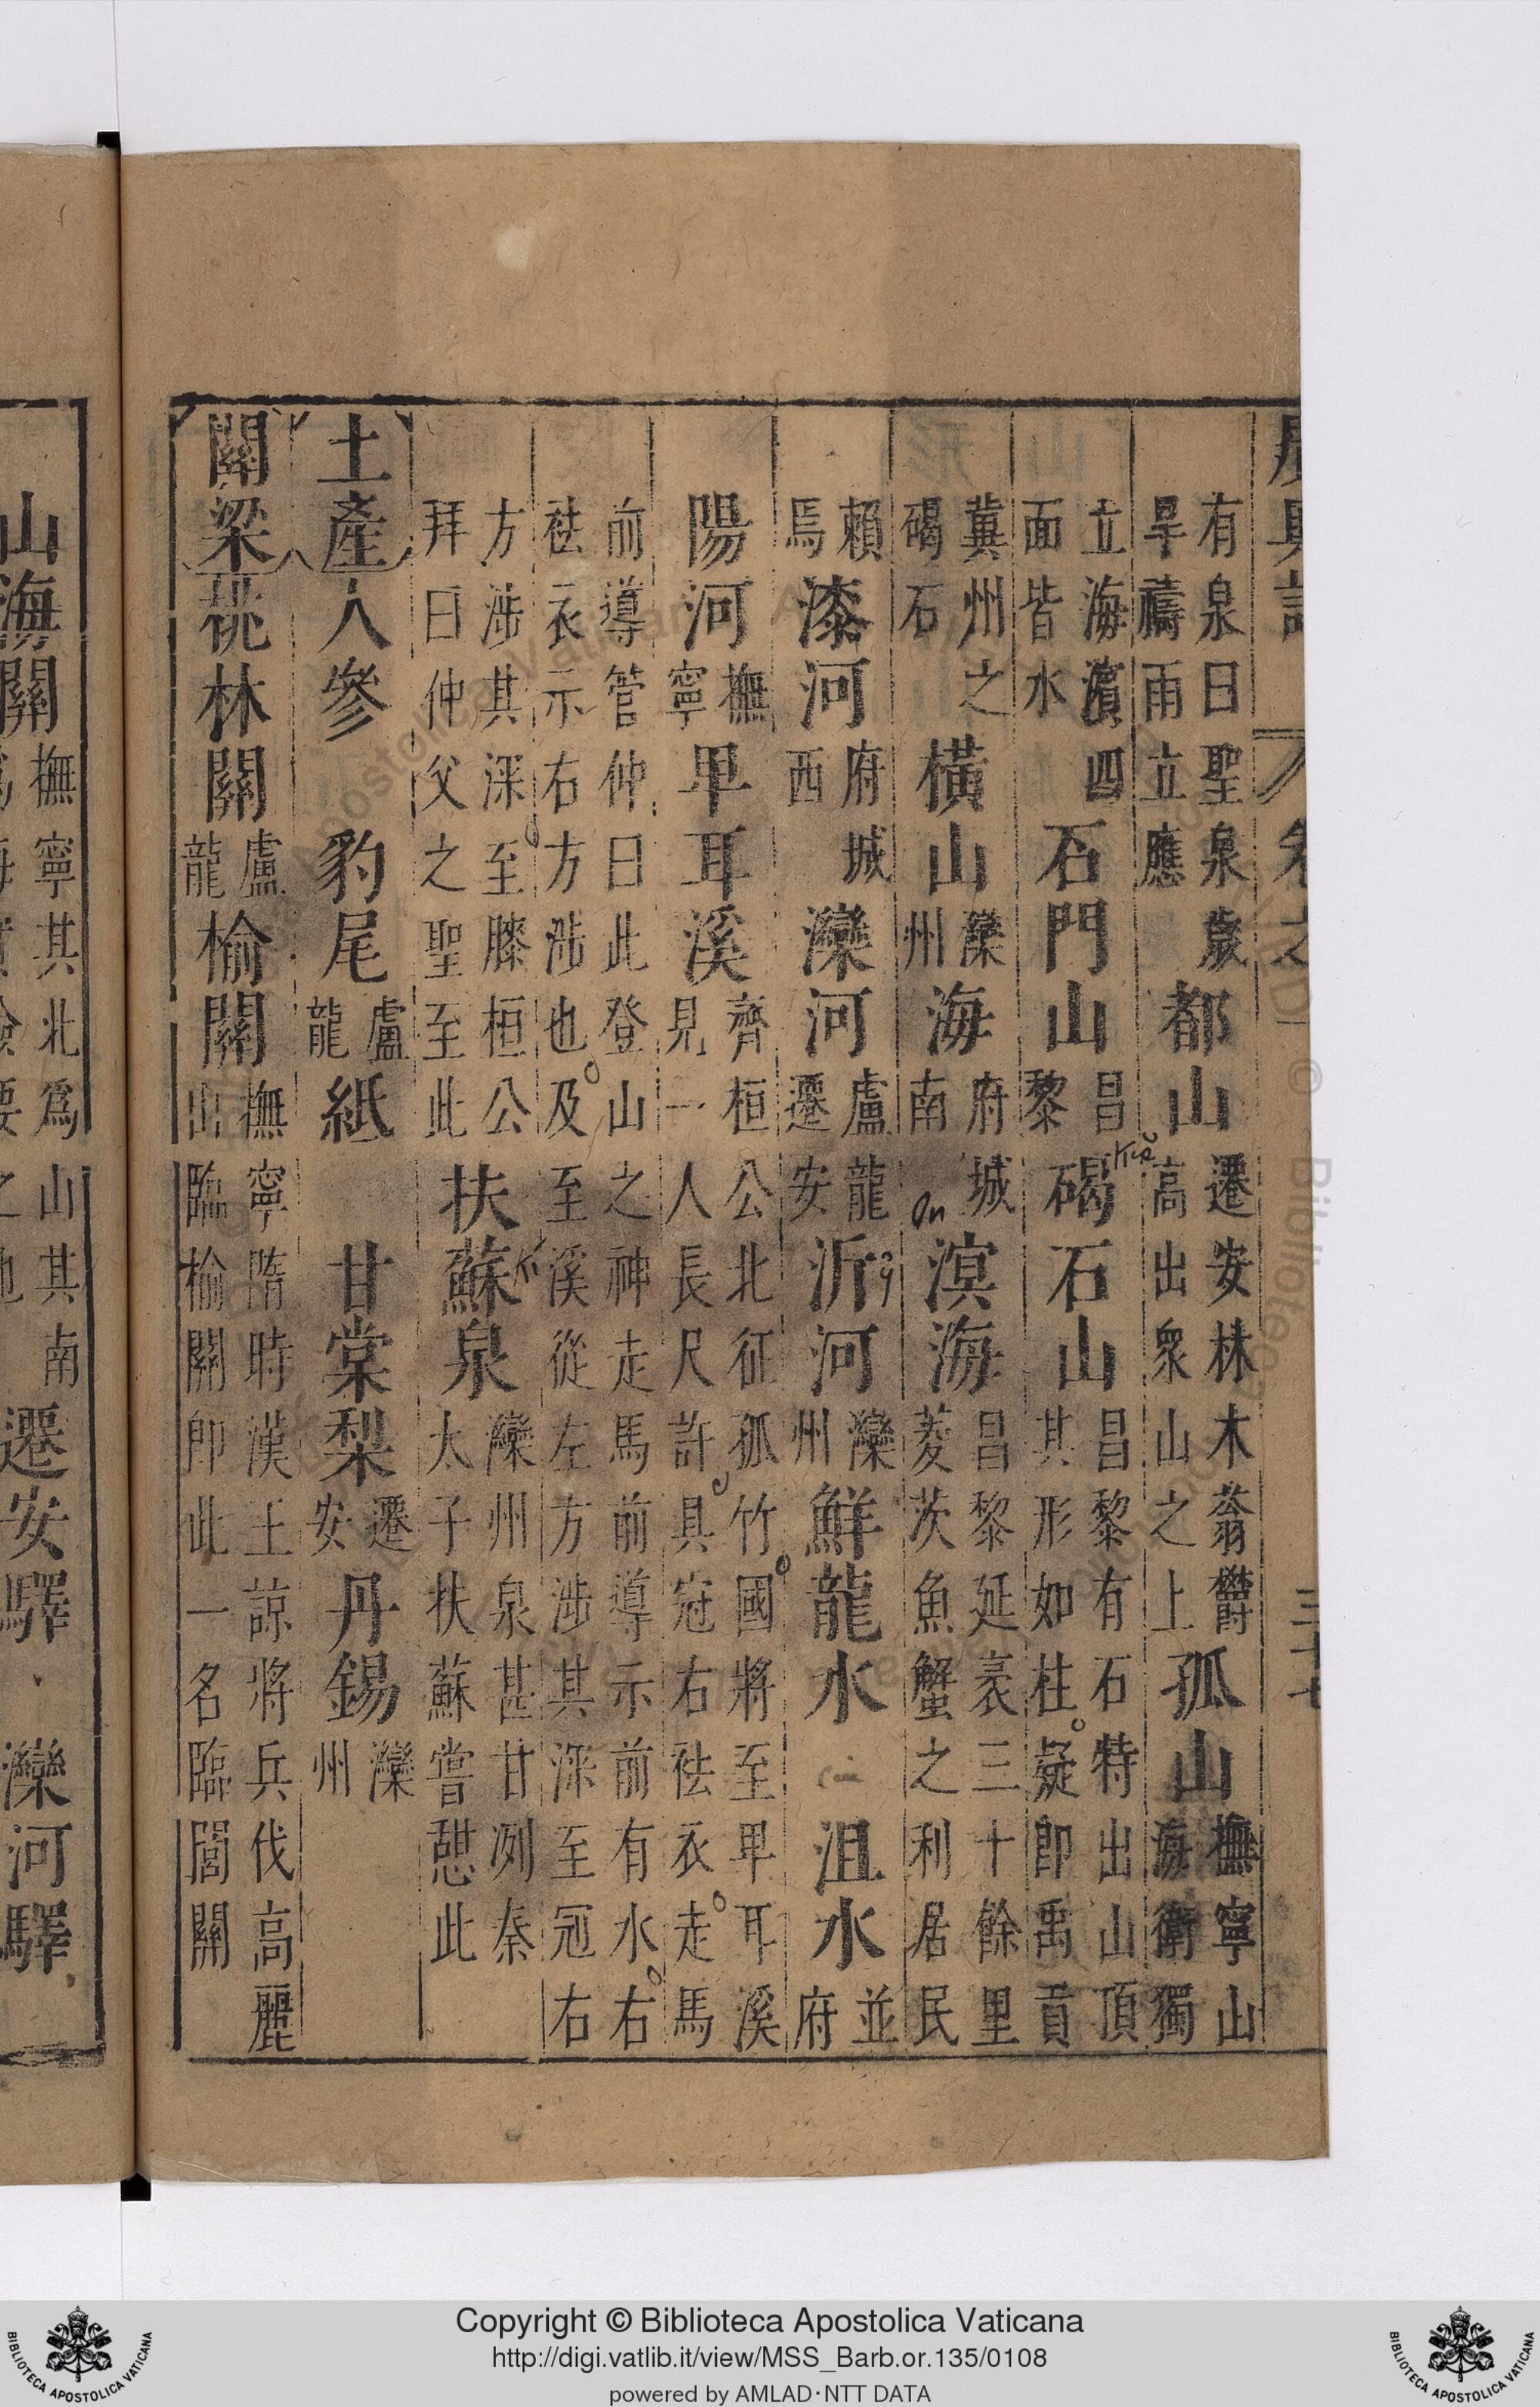 有泉曰聖泉歲
旱禱雨立應
都山
遷安林木蓊欝
高出衆山之上
孤山
撫寧山
海衛獨
立海濱四
面皆水
石門山
昌
黎
碣石山
昌黎有石特出山頂
其形如柱疑即禹貢
冀州之
碣石
橫山
灤
州
海
府城
南
溟海
昌黎延袤三十餘里
菱茨魚蟹之利居民
賴
焉
漆河
府城
西
灤河
盧龍
遷安
沂河
灤
州
鮮龍水
沮水
並
府
陽河
撫
寧
卑耳溪
齊桓公北征孤竹國將至卑耳溪
見一人長尺許具冠右袪衣走馬
前導管仲曰此登山之神走馬前導示前有水右
袪衣示右方涉也及至溪從左方涉其深至冠右
方涉其深至膝桓公
拜曰仲父之聖至此
扶蘇泉
灤州泉甚甘冽秦
太子扶蘇嘗憩此
土產
人參
豹尾
盧
龍
紙
甘棠梨
遷
安
丹錫
灤
州
關梁
桃林關
盧
龍
榆關
撫寧隋時漢王諒將兵伐高麗
出臨榆關即此一名臨閭關
山海關
撫寧其北爲山其南
遷安驛
灤河驛
Copyright © Biblioteca Apostolica Vaticana
http://digi.vatlib.it/view/MSS_Barb.or.135/0108
powered by AMLAD·NTT DATA